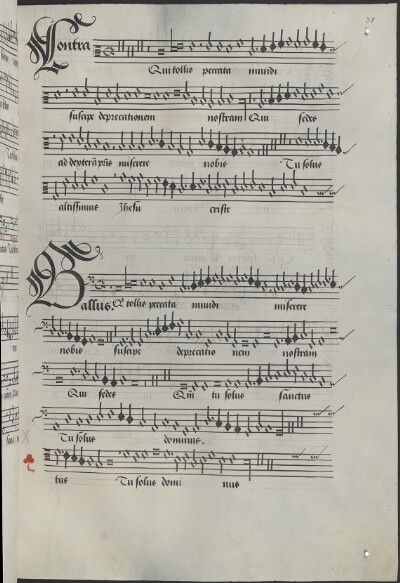 31
Contra
Qui tollis peccata mundi
suscipe deprecationem nostram Qui sedes
ad dexterā p̄ris miserere nobis Tu solus
altissimus Jhesu criste
Bassus. Q tollis peccata mundi miserere
nobis suscipe deprecatio nem nostram
Qui sedes Qm̄ tu solus sanctus
Tu solus dominus.
tus Tu solus domi nus